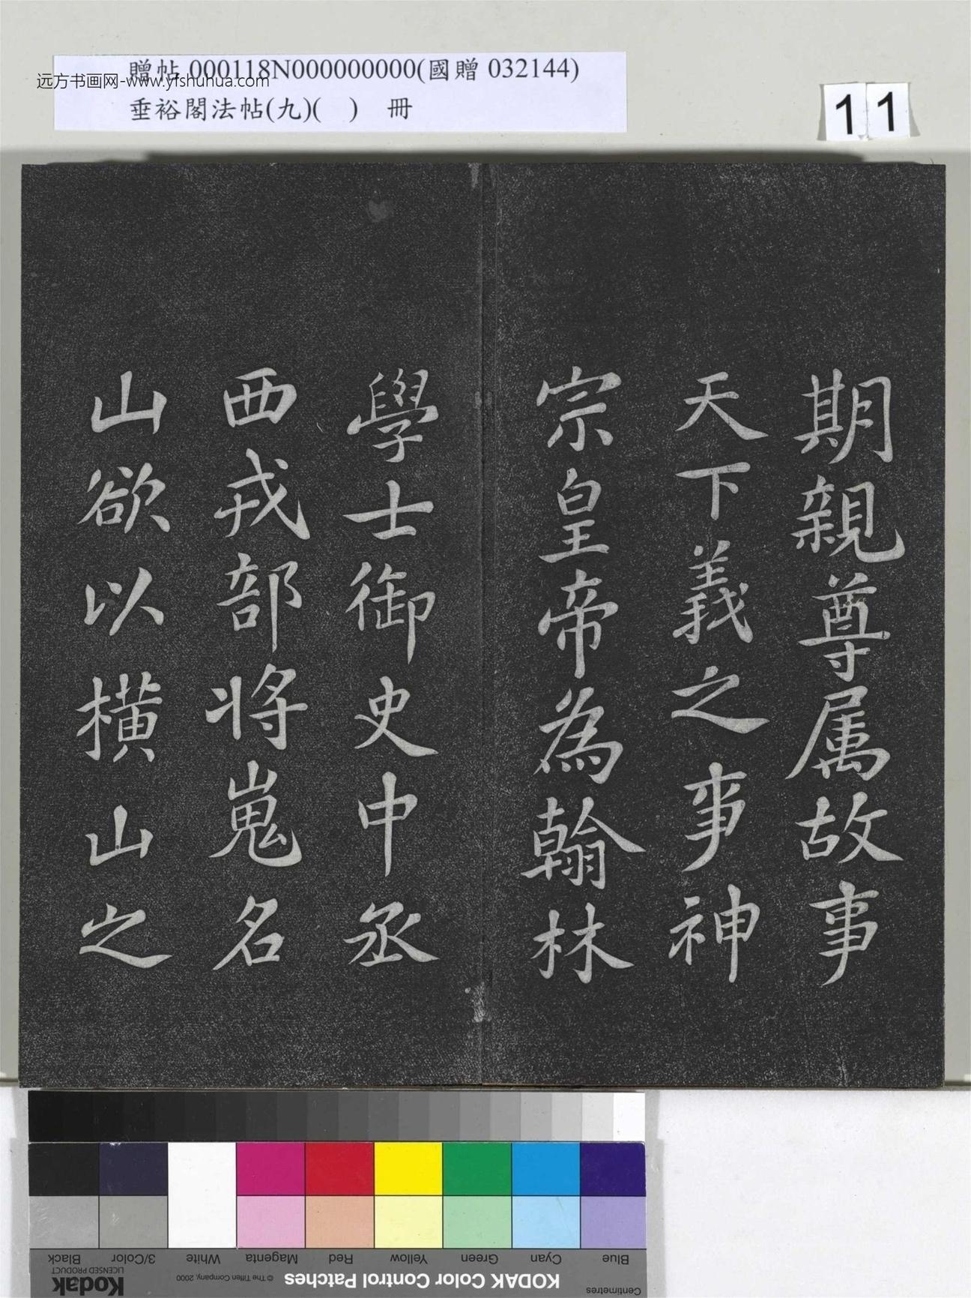 贈帖 000118N000000000(國贈 032144)
远方书画网-www.yishuhua.com
垂裕閣法帖(九)( ) 冊
11
期親尊属故事
天下義之事神
宗皇帝為翰林
學士御史中丞
西戎部将嵬名
山欲以橫山之
Blue Cyan Green Yellow Red Magenta White 3/Color Black
Centimetres KODAK Color Control Patches © The Tiffen Company, 2000 Kodak LICENSED PRODUCT